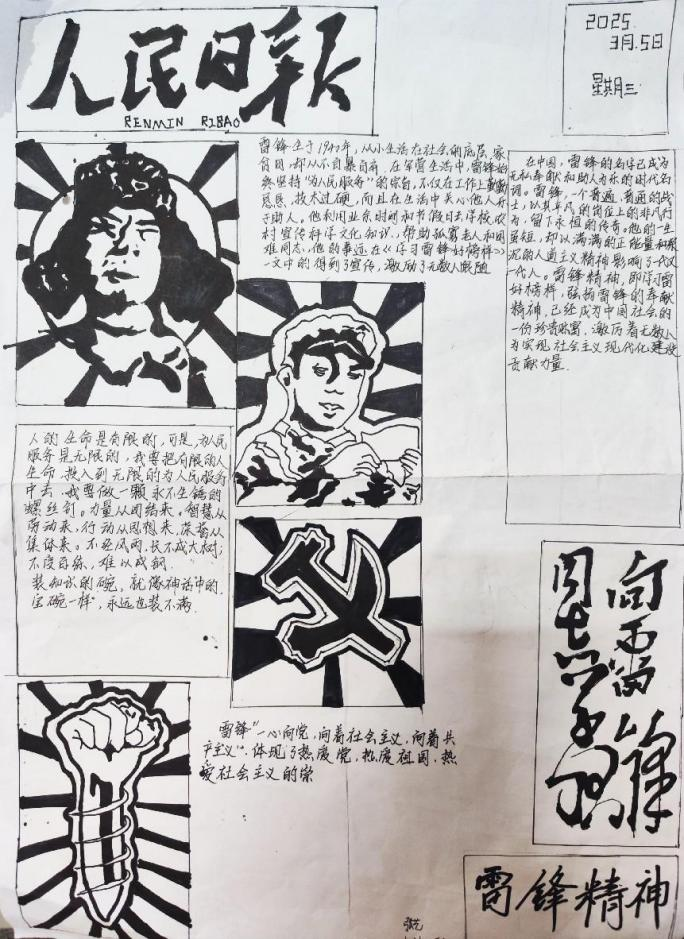 人民日報
RENMIN RIBAO
2025.
3月.5日
星期三
雷锋生于1940年,从小生活在社会的底层,家
贫困,却从不自暴自弃.在军营生活中,雷锋始
终坚持“为人民服务”的宗旨,不仅在工作上勤勤
恳恳,技术过硬,而且在生活中关心他人乐
于助人。他利用业余时间和节假日去学校,农
村宣传科学文化知识,帮助孤寡老人和困
难同志,他的事迹在《学习雷锋好榜样》
一文中的得到了宣传,激励了无数人跟随
在中国,雷锋的名字已成为
无私奉献和助人为乐的时代名
词。雷锋,一个普通,普通的战
士,以其平凡的岗位上的非凡行
为,留下永恒的传奇。他的一生
虽短,却以满满的正能量和
的人道主义精神影响了一代又
一代人。雷锋精神,即学习雷
好榜样,弘扬雷锋的奉献
精神,已经成为中国社会的
一份珍贵财富,激厉着无数人
为实现社会主义现代化建设
贡献力量.
人的生命是有限的,可是,为人民
服务是无限的,我要把有限的人
生命,投入到无限的为人民服务
中去,我要做一颗永不生锈的
螺丝钉。力量从团结来。智慧从
劳动来,行动从思想来,荣誉从
集体来。不经风雨,长不成大树;
不受百炼,难以成钢.
装知识的碗,就像神话中的.
宝碗一样”,永远也装不满.
向雷锋
同志学习
雷锋“一心向党,向着社会主义,向着共
产主义”.体现了热爱党,热爱祖国,热
爱社会主义的崇
雷锋精神